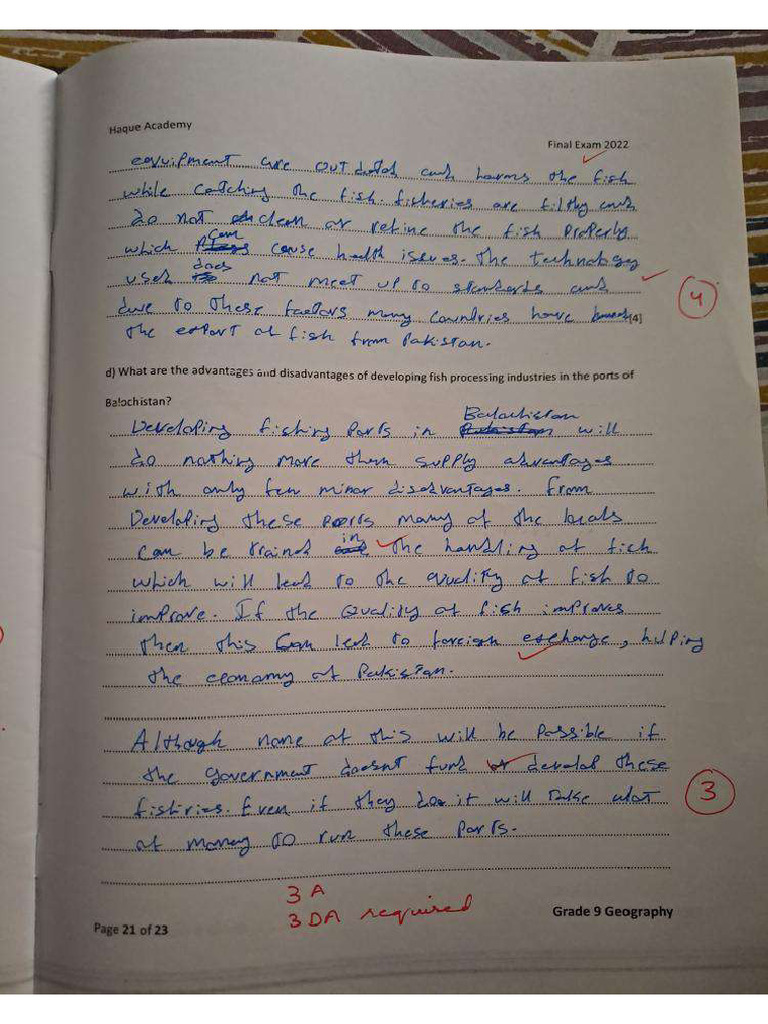 Haque Academy
Final Exam 2022
equipment are outdated and harms the fish
while catching the fish. fisheries are filthy and
do not clean or refine the fish properly
which can cause health issues. The technology
used does not meet up to standards and
due to these factors many countries have banned [4]
the export of fish from Pakistan.
4
d) What are the advantages and disadvantages of developing fish processing industries in the ports of
Balochistan?
Developing fishing Ports in Balochistan will
do nothing more then supply advantages
with only few minor disadvantages. From
Developing these ports many of the boats
can be trained in the handling of fish
which will lead to the quality of fish to
improve. If the Quality of fish improves
then this can lead to foreign exchange, helping
the economy of Pakistan.
Although none of this will be possible if
the government doesnt fund or develop these
fishiries. Even if they do it will take alot
of money to run these Ports.
3
3 A
3 DA required
Page 21 of 23
Grade 9 Geography